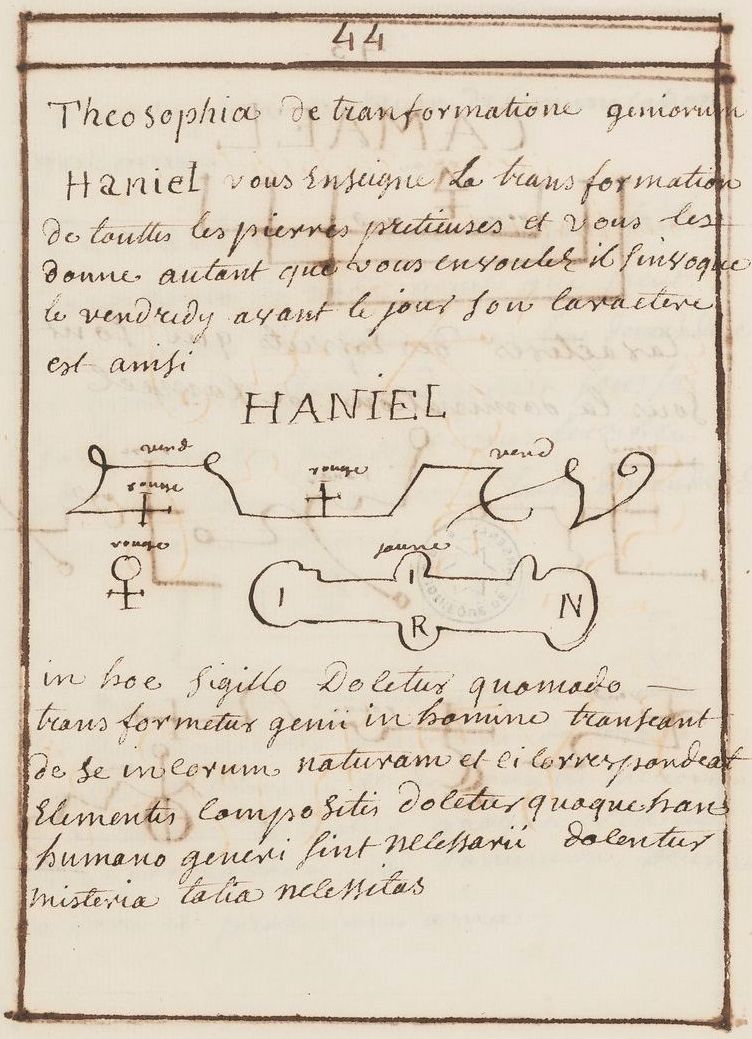 44
Theosophia de tranformatione geniorum
Haniel vous Enseigne La transformation
de touttes les pierres pretieuses et vous les
donne autant que vous en voulez il sinvoque
le vendredy avant le jour son Caractere
est ainsi
HANIEL
verd
verd
rouge
rouge
rouge
jaune
I
I
R
N
in hoc sigillo Doletur quomodo
transformetur genii in homine transeant
de se in eorum naturam et ei Correspondeat
Elementis Compositis doletur quoque han
humano generi sint necessarii dolentur
misteria talia necessitas